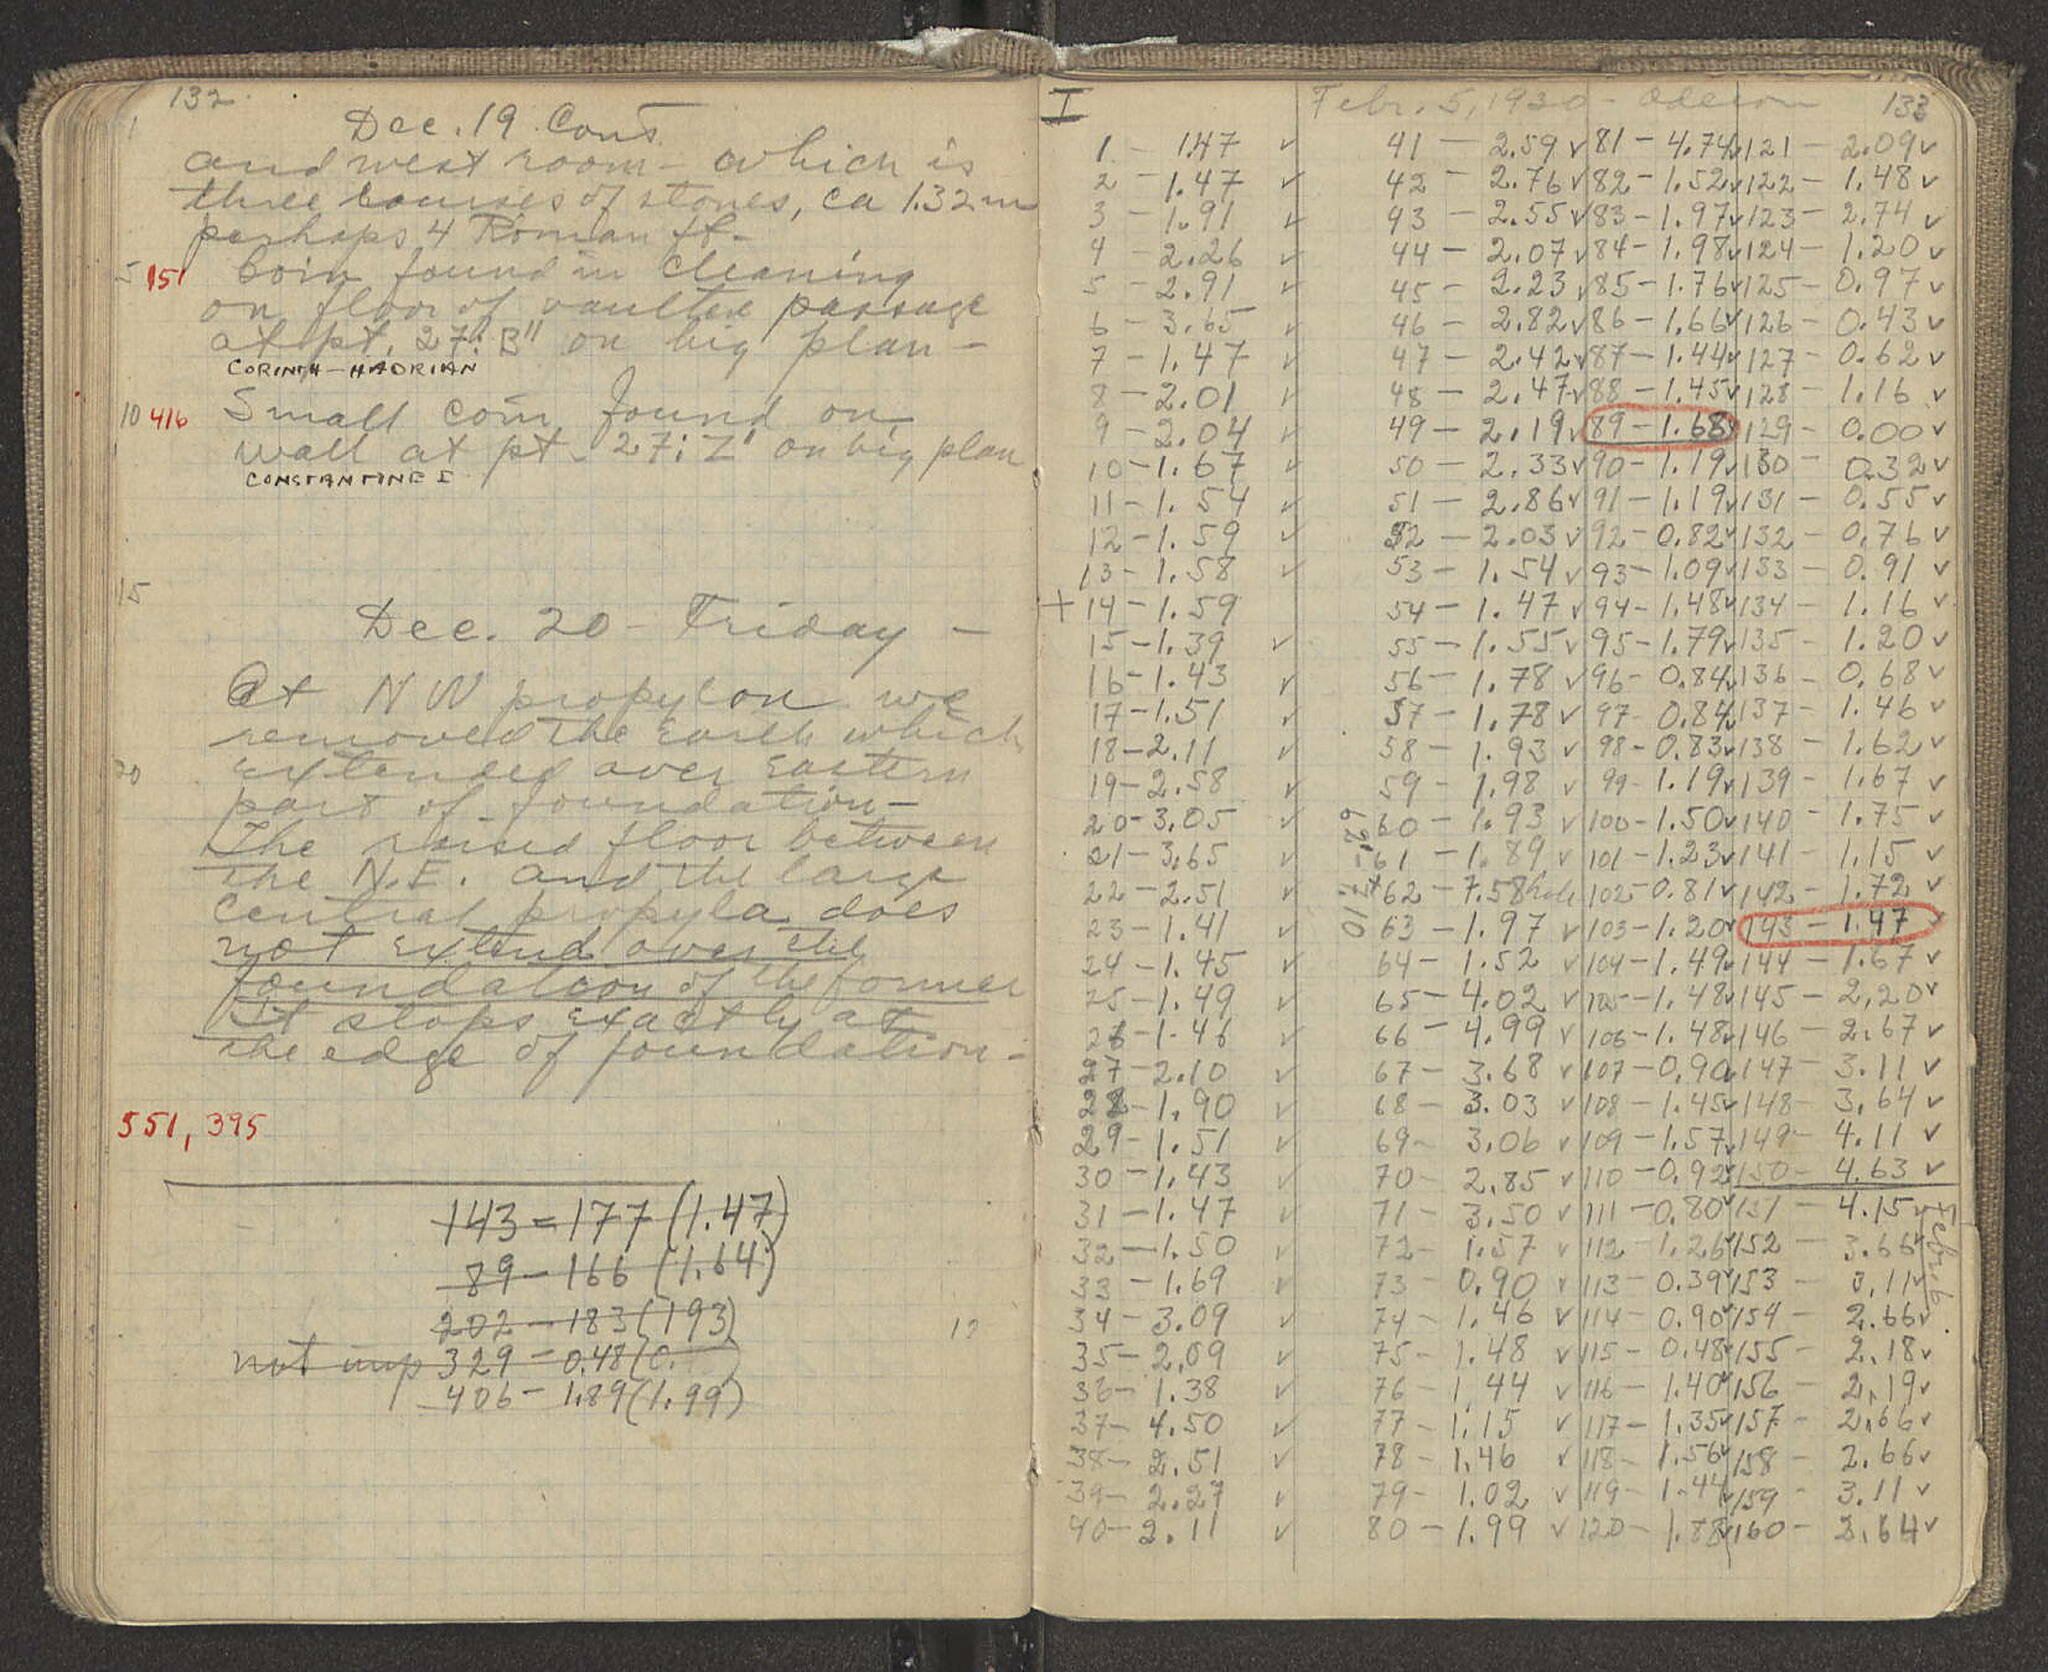 132
Dec. 19 Cont.
and west room – which is
three courses of stones, ca 1.32 m
perhaps 4 Roman ft –
5 151 Coin found in cleaning
on floor of vaulted passage
at pt. 27:B" on big plan –
CORINTH – HADRIAN
10 416 Small coin found on
wall at pt – 27:Z' on big plan
CONSTANTINE I
15
Dec. 20 – Friday –
At NW propylon we
removed the earth which
20 extended over eastern
part of foundation –
The raised floor between
the N.E. and the large
central propyla does
not extend over the
foundation of the former
It stops exactly at
the edge of foundation –
551, 395
143 = 177 (1.47)
89 – 166 (1.64)
202 – 183 (193)
not imp 329 – 0.48 (0.
406 – 1.89 (1.99)
12
I Febr. 5, 1930 – Odeion 133
1 – 1.47 ✓ 41 – 2.59 ✓ 81 – 4.74 ✓ 121 – 2.09 ✓
2 – 1.47 ✓ 42 – 2.76 ✓ 82 – 1.52 ✓ 122 – 1.48 ✓
3 – 1.91 ✓ 43 – 2.55 ✓ 83 – 1.97 ✓ 123 – 2.74 ✓
4 – 2.26 ✓ 44 – 2.07 ✓ 84 – 1.98 ✓ 124 – 1.20 ✓
5 – 2.91 ✓ 45 – 2.23 ✓ 85 – 1.76 ✓ 125 – 0.97 ✓
6 – 3.65 ✓ 46 – 2.82 ✓ 86 – 1.66 ✓ 126 – 0.43 ✓
7 – 1.47 ✓ 47 – 2.42 ✓ 87 – 1.44 ✓ 127 – 0.62 ✓
8 – 2.01 ✓ 48 – 2.47 ✓ 88 – 1.45 ✓ 128 – 1.16 ✓
9 – 2.04 ✓ 49 – 2.19 ✓ 89 – 1.68 ✓ 129 – 0.00 ✓
10 – 1.67 ✓ 50 – 2.33 ✓ 90 – 1.19 ✓ 130 – 0.32 ✓
11 – 1.54 ✓ 51 – 2.86 ✓ 91 – 1.19 ✓ 131 – 0.55 ✓
12 – 1.59 ✓ 52 – 2.03 ✓ 92 – 0.82 ✓ 132 – 0.76 ✓
13 – 1.58 ✓ 53 – 1.54 ✓ 93 – 1.09 ✓ 133 – 0.91 ✓
+ 14 – 1.59 54 – 1.47 ✓ 94 – 1.48 ✓ 134 – 1.16 ✓
15 – 1.39 ✓ 55 – 1.55 ✓ 95 – 1.79 ✓ 135 – 1.20 ✓
16 – 1.43 ✓ 56 – 1.78 ✓ 96 – 0.84 ✓ 136 – 0.68 ✓
17 – 1.51 ✓ 57 – 1.78 ✓ 97 – 0.84 ✓ 137 – 1.46 ✓
18 – 2.11 ✓ 58 – 1.93 ✓ 98 – 0.83 ✓ 138 – 1.62 ✓
19 – 2.58 ✓ 59 – 1.98 ✓ 99 – 1.19 ✓ 139 – 1.67 ✓
20 – 3.05 ✓ 60 – 1.93 ✓ 100 – 1.50 ✓ 140 – 1.75 ✓
21 – 3.65 ✓ 61 – 1.89 ✓ 101 – 1.23 ✓ 141 – 1.15 ✓
22 – 2.51 ✓ 62 – 7.58 hole 102 – 0.81 ✓ 142 – 1.72 ✓
23 – 1.41 ✓ 63 – 1.97 ✓ 103 – 1.20 ✓ 143 – 1.47 ✓
24 – 1.45 ✓ 64 – 1.52 ✓ 104 – 1.49 ✓ 144 – 1.67 ✓
25 – 1.49 ✓ 65 – 4.02 ✓ 105 – 1.48 ✓ 145 – 2.20 ✓
26 – 1.46 ✓ 66 – 4.99 ✓ 106 – 1.48 ✓ 146 – 2.67 ✓
27 – 2.10 ✓ 67 – 3.68 ✓ 107 – 0.90 ✓ 147 – 3.11 ✓
28 – 1.90 ✓ 68 – 3.03 ✓ 108 – 1.45 ✓ 148 – 3.64 ✓
29 – 1.51 ✓ 69 – 3.06 ✓ 109 – 1.57 ✓ 149 – 4.11 ✓
30 – 1.43 ✓ 70 – 2.85 ✓ 110 – 0.92 ✓ 150 – 4.63 ✓
31 – 1.47 ✓ 71 – 3.50 ✓ 111 – 0.80 ✓ 151 – 4.15 ✓
Febr. 6
32 – 1.50 ✓ 72 – 1.57 ✓ 112 – 1.26 ✓ 152 – 3.66 ✓
33 – 1.69 ✓ 73 – 0.90 ✓ 113 – 0.39 ✓ 153 – 3.11 ✓
34 – 3.09 ✓ 74 – 1.46 ✓ 114 – 0.90 ✓ 154 – 2.66 ✓
35 – 2.09 ✓ 75 – 1.48 ✓ 115 – 0.48 ✓ 155 – 2.18 ✓
36 – 1.38 ✓ 76 – 1.44 ✓ 116 – 1.40 ✓ 156 – 2.19 ✓
37 – 4.50 ✓ 77 – 1.15 ✓ 117 – 1.35 ✓ 157 – 2.66 ✓
38 – 2.51 ✓ 78 – 1.46 ✓ 118 – 1.56 ✓ 158 – 2.66 ✓
39 – 2.27 ✓ 79 – 1.02 ✓ 119 – 1.44 ✓ 159 – 3.11 ✓
40 – 2.11 ✓ 80 – 1.99 ✓ 120 – 1.88 ✓ 160 – 2.64 ✓